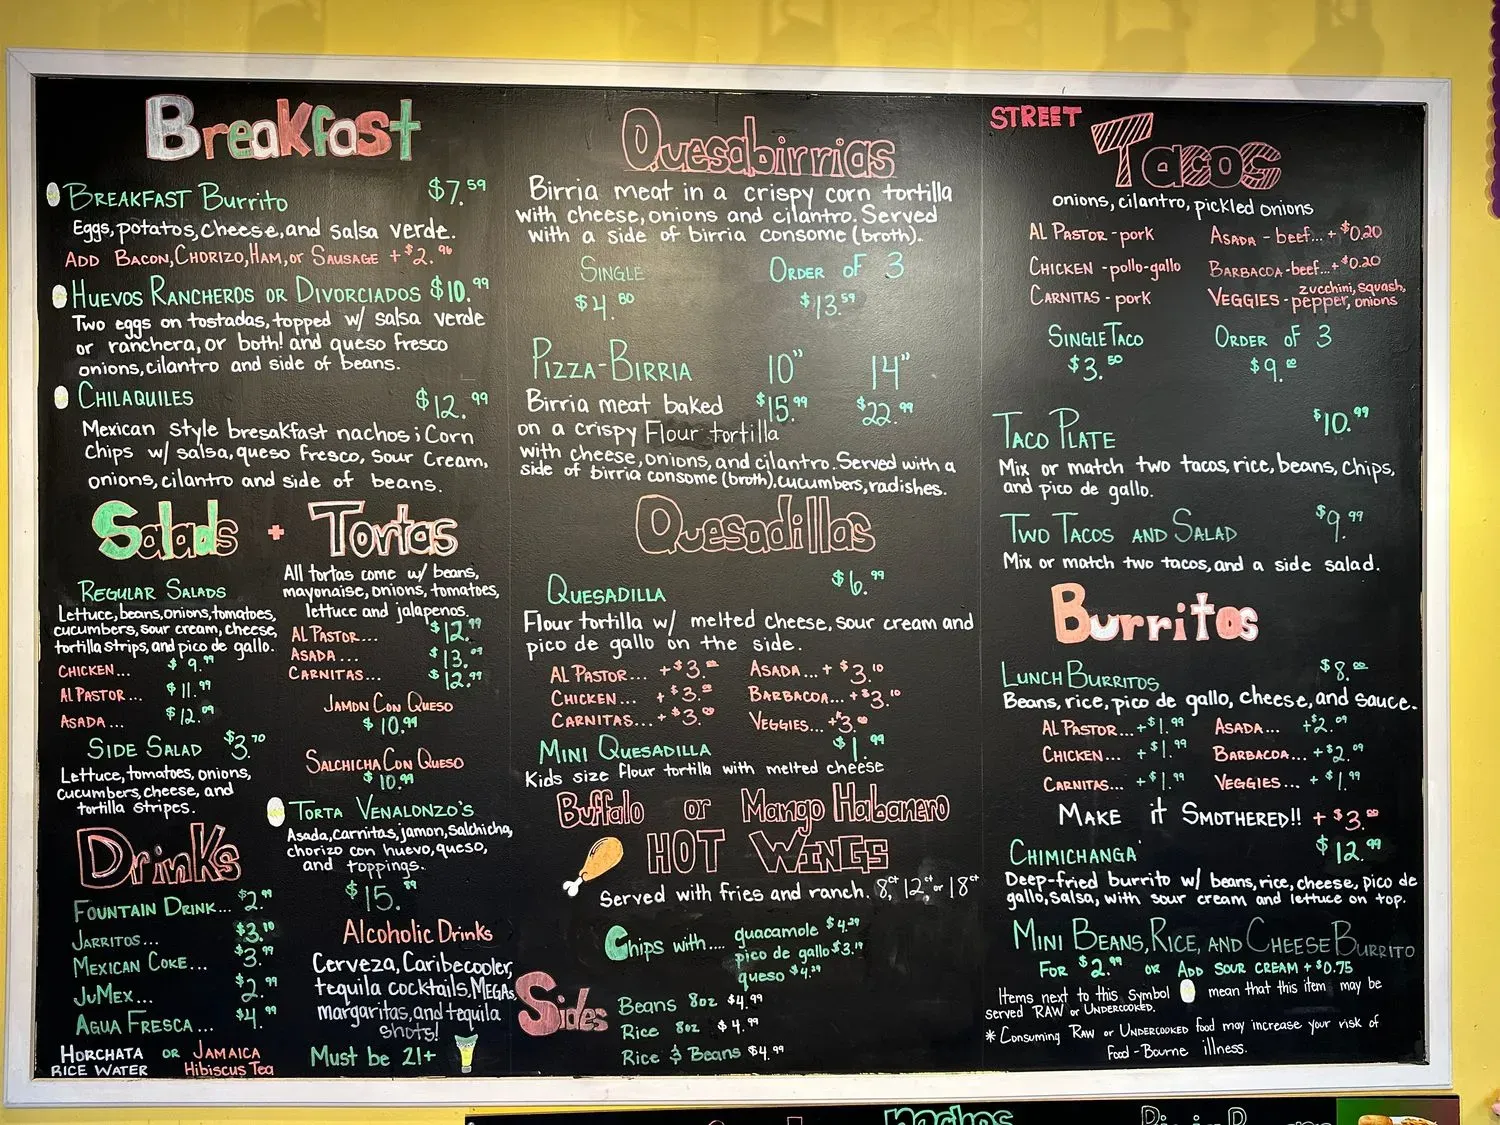 Breakfast
BREAKFAST Burrito $7.59
Eggs, potatoes, cheese, and salsa verde.
ADD BACON, CHORIZO, HAM, or SAUSAGE + $2.96
HUEVOS RANCHEROS OR DIVORCIADOS $10.99
Two eggs on tostadas, topped w/ salsa verde
or ranchera, or both! and queso fresco
onions, cilantro and side of beans.
CHILAQUILES $12.99
Mexican style bresakfast nachos; Corn
Chips w/ salsa, queso fresco, sour cream,
onions, cilantro and side of beans.
Salads + Tortas
REGULAR SALADS
Lettuce, beans, onions, tomatoes,
cucumbers, sour cream, cheese,
tortilla strips, and pico de gallo.
CHICKEN... $9.99
AL PASTOR... $11.99
ASADA... $12.09
SIDE SALAD $3.70
Lettuce, tomatoes, onions,
cucumbers, cheese, and
tortilla stripes.
All tortas come w/ beans,
mayonaise, onions, tomatoes,
lettuce and jalapenos.
AL PASTOR... $12.99
ASADA... $13.09
CARNITAS... $12.99
JAMON CON QUESO
$10.99
SALCHICHA CON QUESO
$10.99
TORTA VENALONZO'S
Asada, carnitas, jamon, salchicha,
chorizo con huevo, queso,
and toppings.
$15.
Drinks
FOUNTAIN DRINK... $2.99
JARRITOS... $3.10
MEXICAN COKE... $3.99
JuMEX... $2.99
AGUA FRESCA... $4.99
HORCHATA OR JAMAICA
RICE WATER Hibiscus Tea
Alcoholic Drinks
Cerveza, Caribecooler,
tequila cocktails, MEGAs,
margaritas, and tequila
shots!
Must be 21+
Quesabirrias
Birria meat in a crispy corn tortilla
with cheese, onions and cilantro. Served
with a side of birria consome (broth).
SINGLE ORDER OF 3
$4.80 $13.59
PIZZA-BIRRIA 10" 14"
Birria meat baked $15.99 $22.99
on a crispy Flour tortilla
with cheese, onions, and cilantro. Served with a
side of birria consome (broth). cucumbers, radishes.
Quesadillas
QUESADILLA $6.99
Flour tortilla w/ melted cheese, sour cream and
pico de gallo on the side.
AL PASTOR... +$3.00 ASADA... + $3.10
CHICKEN... +$3.00 BARBACOA... +$3.10
CARNITAS... +$3.00 VEGGIES... +$3.00
MINI QUESADILLA $1.99
Kids size Flour tortilla with melted cheese
Buffalo or Mango Habanero
HOT WINGS
Served with fries and ranch. 8ct, 12ct or 18ct
Sides
Chips with.... guacamole $4.29
pico de gallo $3.19
queso $4.29
Beans 8oz $4.99
Rice 8oz $4.99
Rice & Beans $4.99
STREET
Tacos
onions, cilantro, pickled onions
AL PASTOR - pork ASADA - beef... + $0.20
CHICKEN - pollo-gallo BARBACOA - beef... + $0.20
CARNITAS - pork VEGGIES - zucchini, squash,
pepper, onions
SINGLE TACO ORDER OF 3
$3.50 $9.00
TACO PLATE $10.99
Mix or match two tacos, rice, beans, chips,
and pico de gallo.
TWO TACOS AND SALAD $9.99
Mix or match two tacos, and a side salad.
Burritos
LUNCH BURRITOS $8.00
Beans, rice, pico de gallo, cheese, and sauce.
AL PASTOR... +$1.99 ASADA... +$2.09
CHICKEN... +$1.99 BARBACOA... +$2.09
CARNITAS... +$1.99 VEGGIES... + $1.99
MAKE it SMOTHERED!! + $3.00
CHIMICHANGA' $12.99
Deep-fried burrito w/ beans, rice, cheese, pico de
gallo, salsa, with sour cream and lettuce on top.
MINI BEANS, RICE, AND CHEESE BURRITO
FOR $2.99 OR ADD SOUR CREAM + $0.75
Items next to this symbol mean that this item may be
served RAW or UNDERCOOKED.
* Consuming RAW or UNDERCOOKED food may increase your risk of
Food-Bourne illness.
nachos